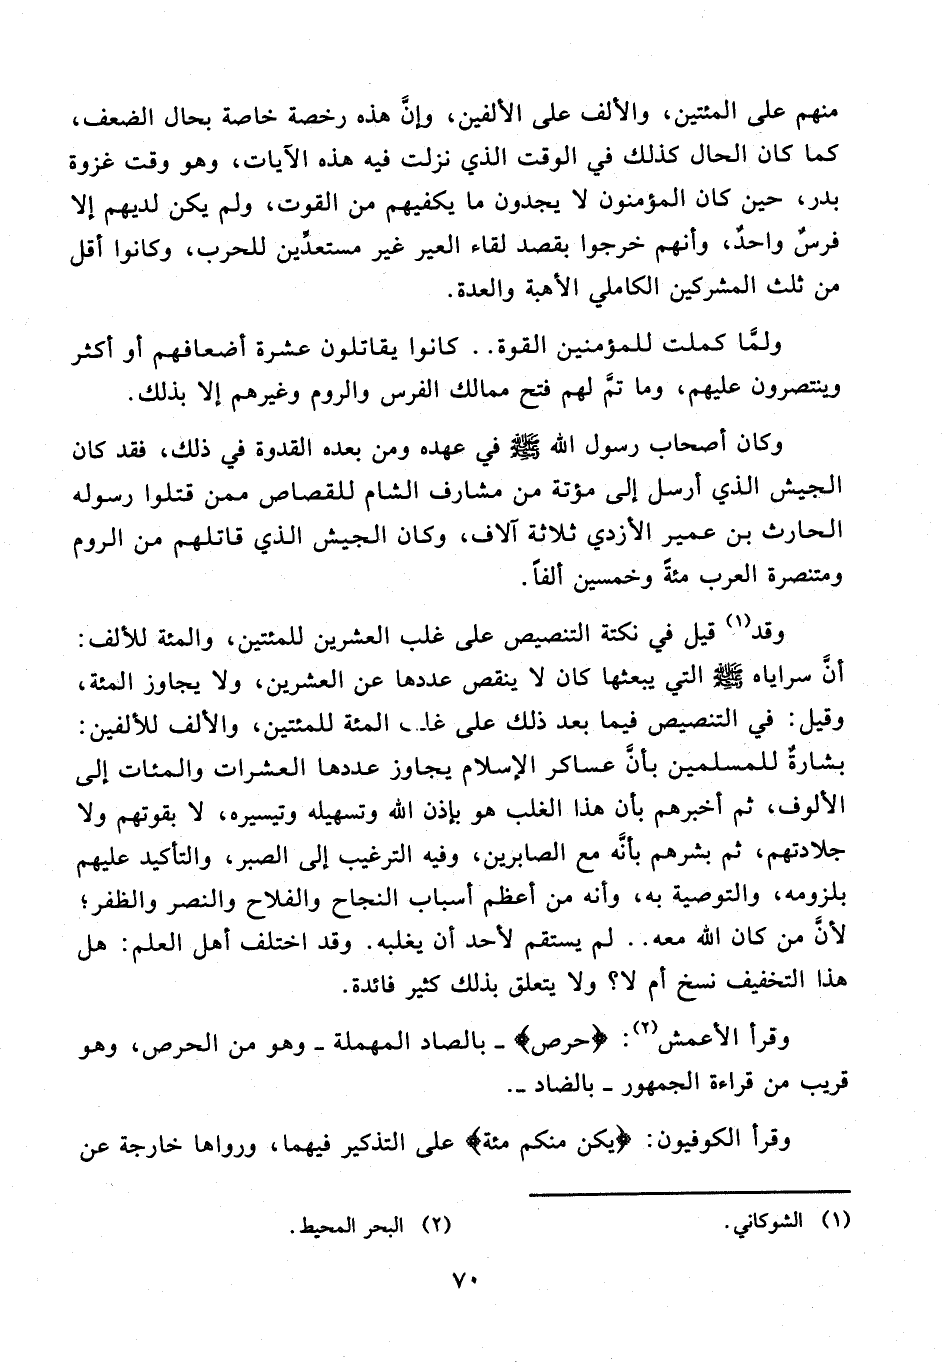 منهم على المئتين، والألف على الألفين، وإنَّ هذه رخصة خاصة بحال الضعف،
كما كان الحال كذلك في الوقت الذي نزلت فيه هذه الآيات، وهو وقت غزوة
بدر، حين كان المؤمنون لا يجدون ما يكفيهم من القوت، ولم يكن لديهم إلا
فرسٌ واحدٌ، وأنهم خرجوا بقصد لقاء العير غير مستعدِّين للحرب، وكانوا أقل
من ثلث المشركين الكاملي الأهبة والعدة.
ولمَّا كملت للمؤمنين القوة.. كانوا يقاتلون عشرة أضعافهم أو أكثر
وينتصرون عليهم، وما تمَّ لهم فتح ممالك الفرس والروم وغيرهم إلا بذلك.
وكان أصحاب رسول الله ﷺ في عهده ومن بعده القدوة في ذلك، فقد كان
الجيش الذي أرسل إلى مؤتة من مشارف الشام للقصاص ممن قتلوا رسوله
الحارث بن عمير الأزدي ثلاثة آلاف، وكان الجيش الذي قاتلهم من الروم
ومتنصرة العرب مئةً وخمسين ألفاً.
وقد(١) قيل في نكتة التنصيص على غلب العشرين للمئتين، والمئة للألف:
أنَّ سراياه ﷺ التي يبعثها كان لا ينقص عددها عن العشرين، ولا يجاوز المئة،
وقيل: في التنصيص فيما بعد ذلك على غلب المئة للمئتين، والألف للألفين:
بشارةٌ للمسلمين بأنَّ عساكر الإسلام يجاوز عددها العشرات والمئات إلى
الألوف، ثم أخبرهم بأن هذا الغلب هو بإذن الله وتسهيله وتيسيره، لا بقوتهم ولا
جلادتهم، ثم بشرهم بأنَّه مع الصابرين، وفيه الترغيب إلى الصبر، والتأكيد عليهم
بلزومه، والتوصية به، وأنه من أعظم أسباب النجاح والفلاح والنصر والظفر؛
لأنَّ من كان الله معه.. لم يستقم لأحد أن يغلبه. وقد اختلف أهل العلم: هل
هذا التخفيف نسخ أم لا؟ ولا يتعلق بذلك كثير فائدة.
وقرأ الأعمش(٢): ﴿حرص﴾ ـ بالصاد المهملة ـ وهو من الحرص، وهو
قريب من قراءة الجمهور ـ بالضاد ـ.
وقرأ الكوفيون: ﴿يكن منكم مئة﴾ على التذكير فيهما، ورواها خارجة عن
(١) الشوكاني. (٢) البحر المحيط.
٧٠